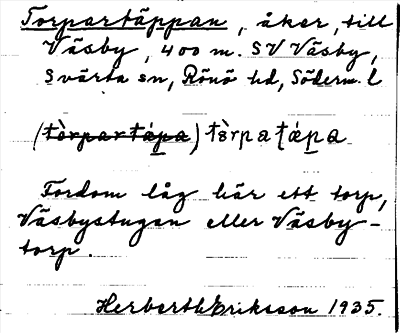 Torpartäppan, åker, till
Väsby, 400 m. SV Väsby,
Svärta sn, Rönö hd, Söderm. l
(tòrpartápa) tòrpatápa
Fordom låg här ett torp,
Väsbystugan eller Väsby-
torp.
Herbert Eriksson 1935.